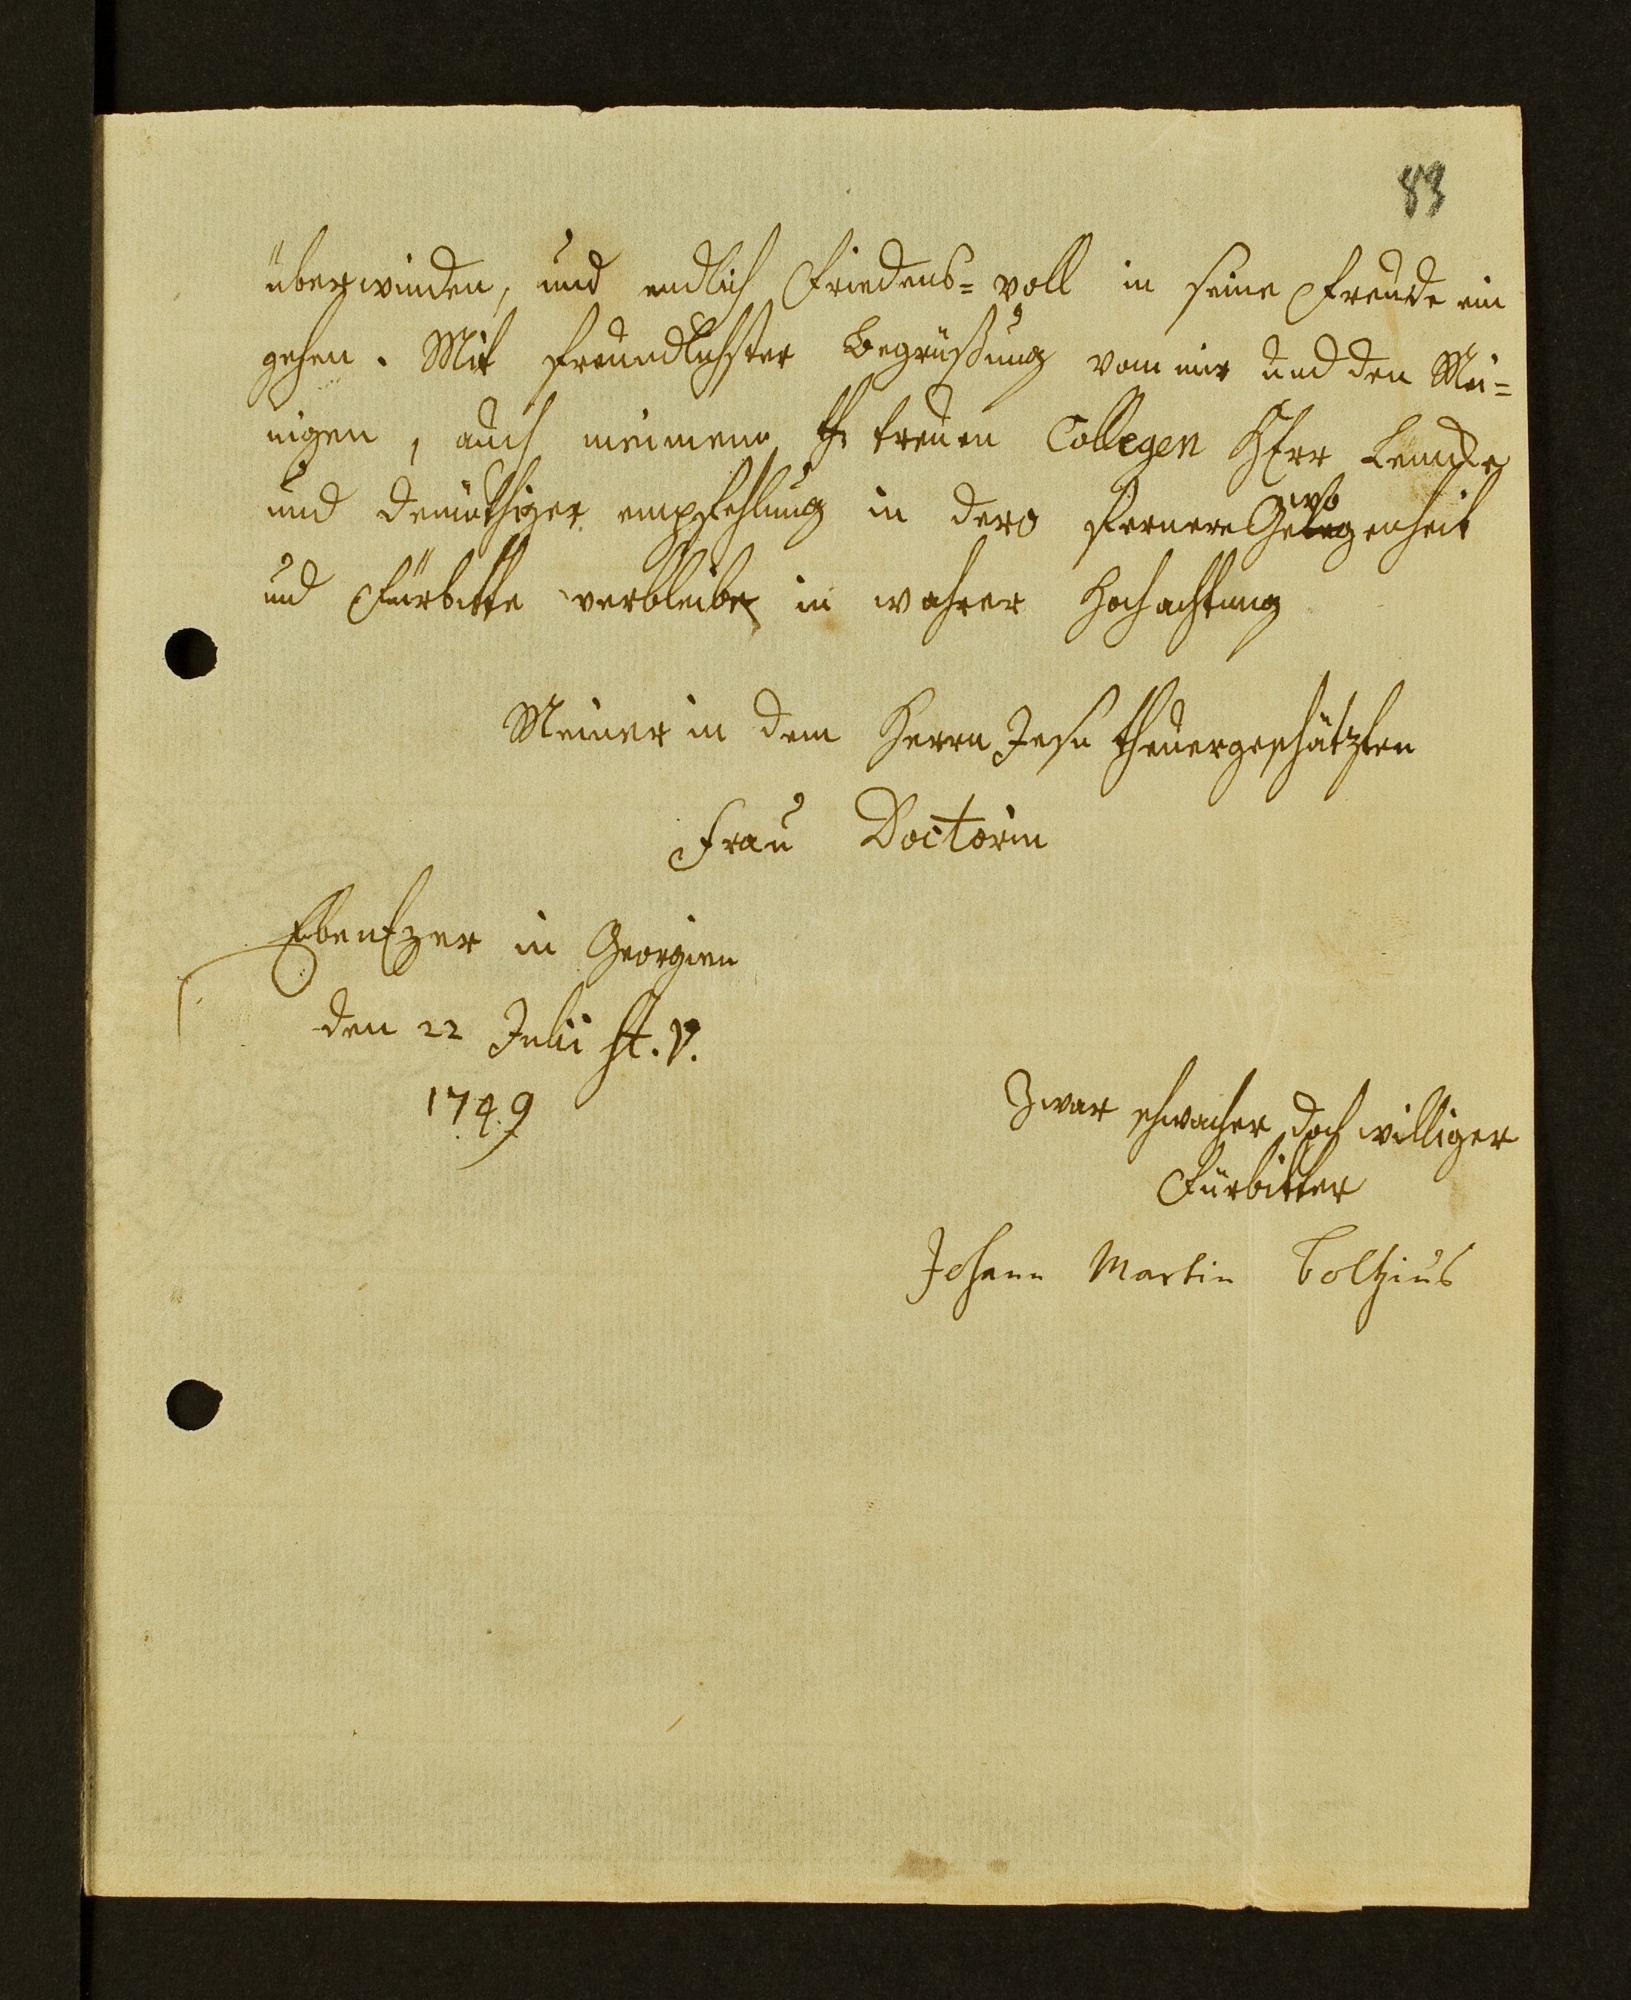 83
überwinden, und endlich Friedens= voll in seine Freude ein
gehen. Mit freundlichster Begrüßung von mir und den Mei=
nigen, auch meinem th. treuen Collegen HErr Lemke
und demüthiger empfehlung in dero fernere Gewogenheit
und Fürbitte verbleibe in wahrer Hochachtung
Meiner in dem Herrn Jesu theuergeschätzten
Frau Doctorin
EbenEzer in Georgien
den 22 Julii st. v.
1749
Zwar schwacher doch williger
Fürbitter
Johann Martin Boltzius